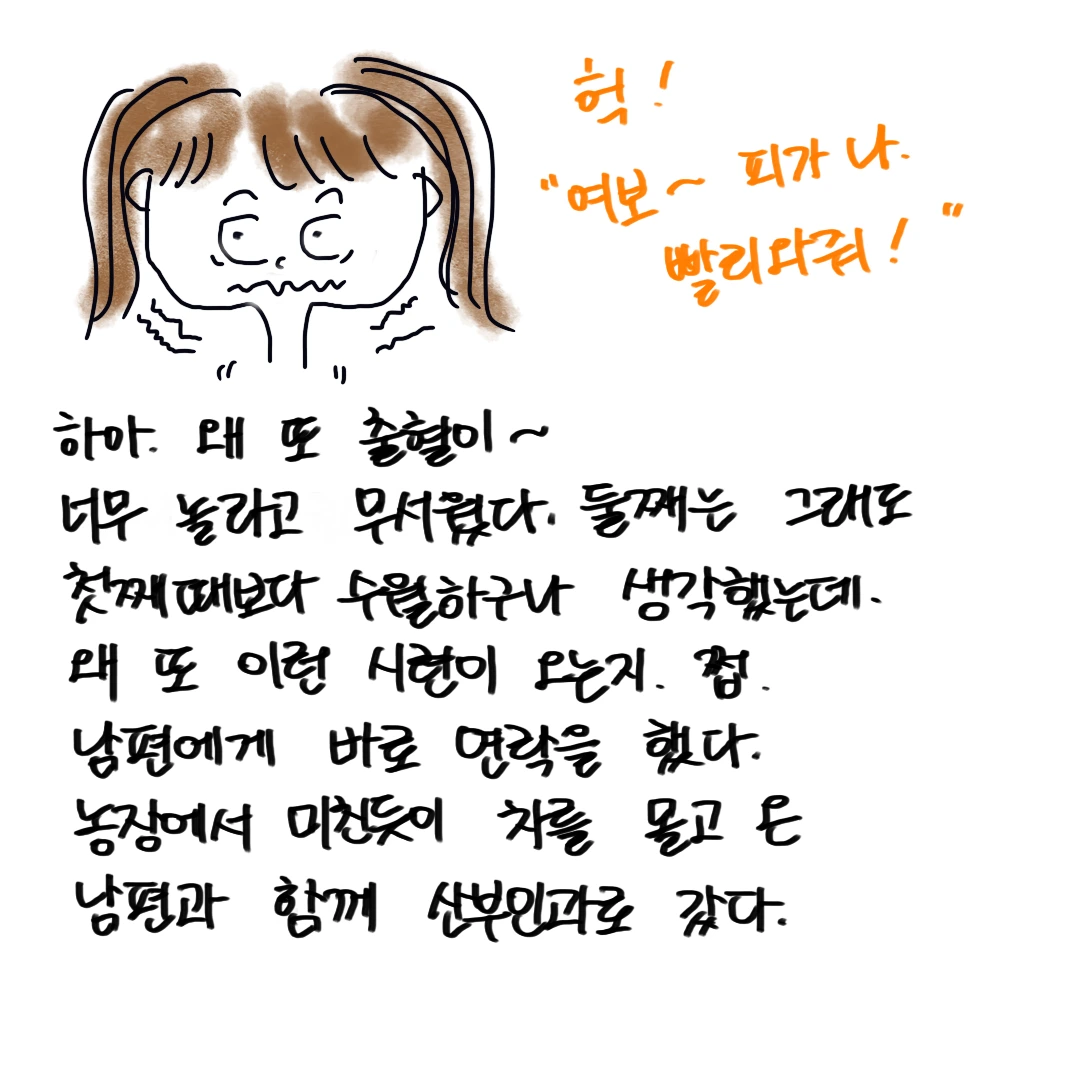 헉!
"여보~ 피가 나.
빨리와줘!"
하아. 왜 또 출혈이~
너무 놀라고 무서웠다. 둘째는 그래도
첫째때보다 수월하구나 생각했는데.
왜 또 이런 시련이 오는지. 쩝.
남편에게 바로 연락을 했다.
농장에서 미친듯이 차를 몰고 온
남편과 함께 산부인과로 갔다.